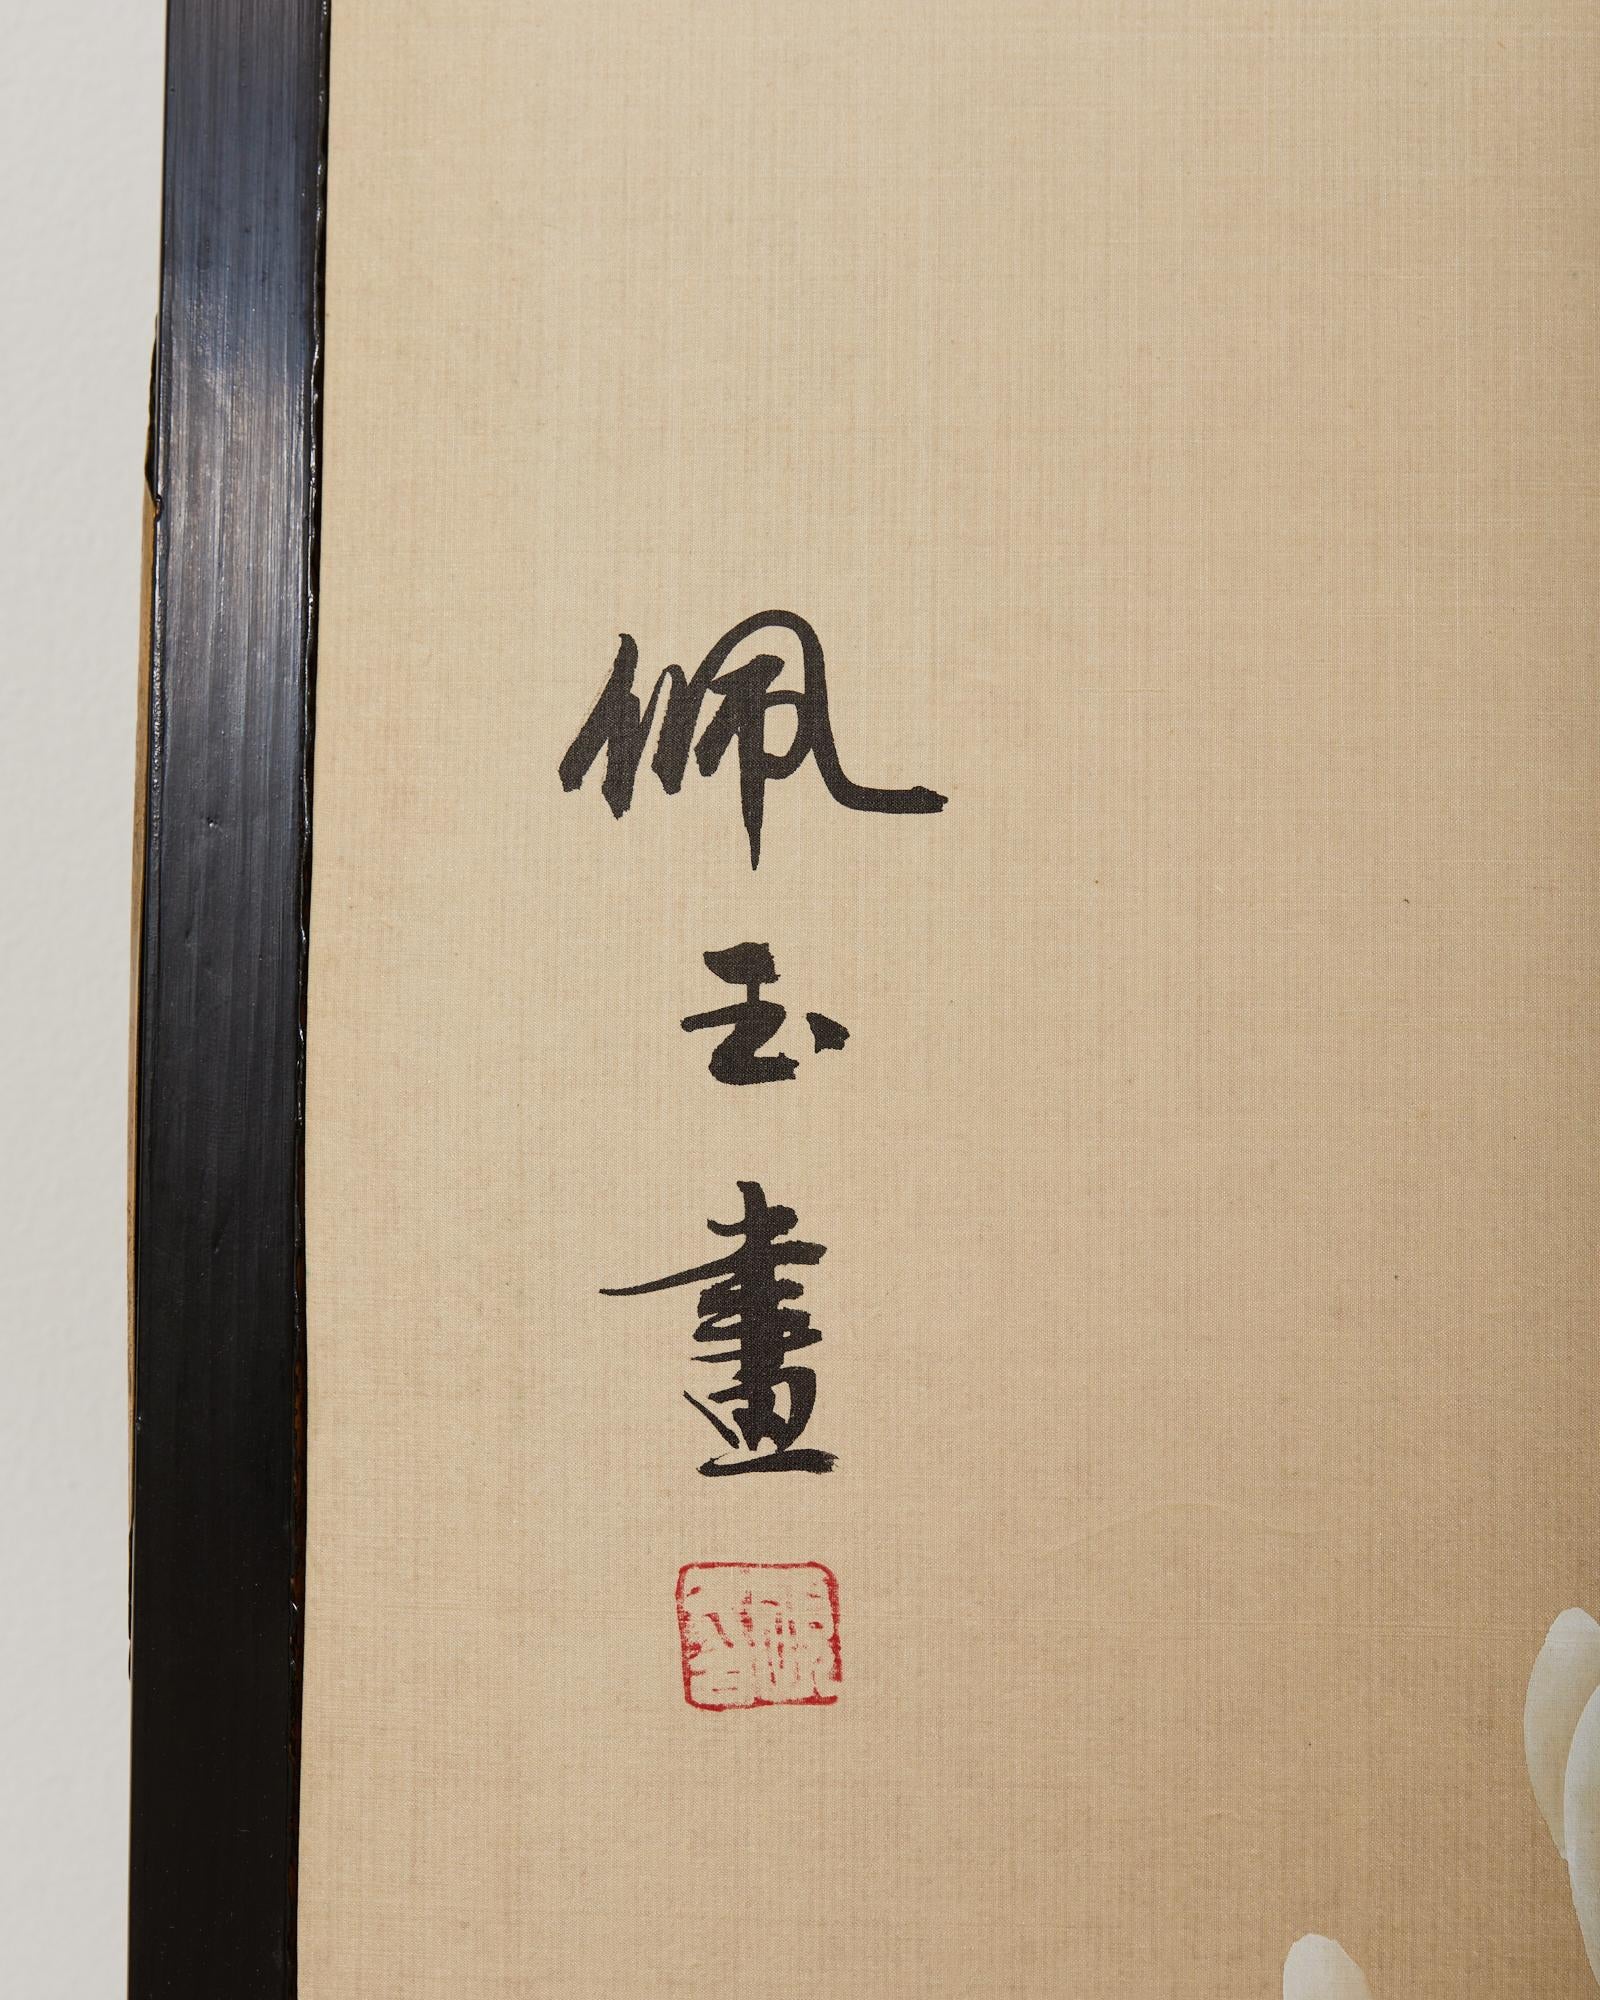 佩玉畫